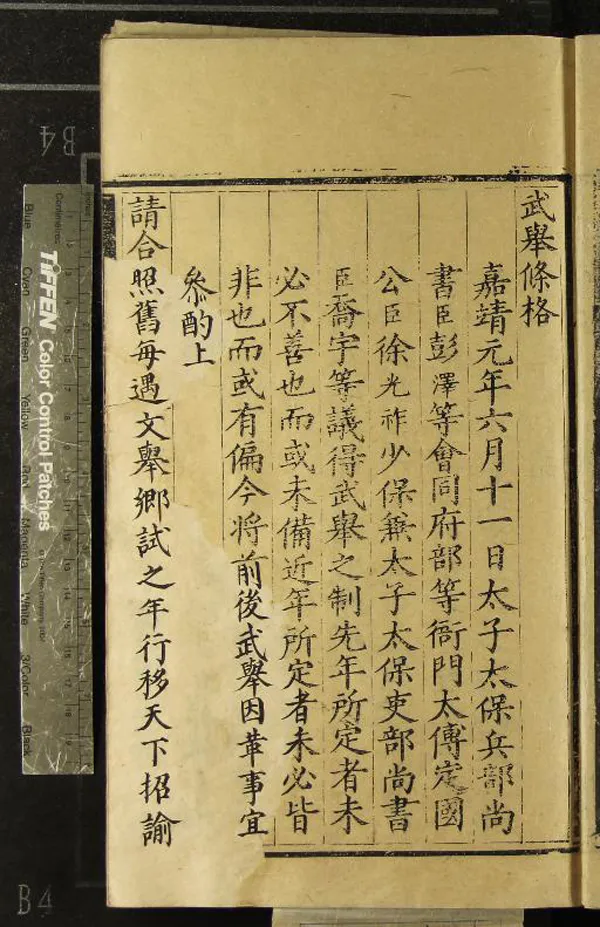 武舉條格
嘉靖元年六月十一日太子太保兵部尚
書臣彭澤等會同府部等衙門太傅定國
公臣徐光祚少保兼太子太保吏部尚書
臣喬宇等議得武舉之制先年所定者未
必不善也而或未備近年所定者未必皆
非也而或有偏今將前後武舉因革事宜
叅酌上
請合照舊每遇文舉鄉試之年行移天下招諭
B4
TIFFEN Color Control Patches
Centimetres
Blue
Cyan
Green
Yellow
Red
Magenta
White
3/Color
Black
B4